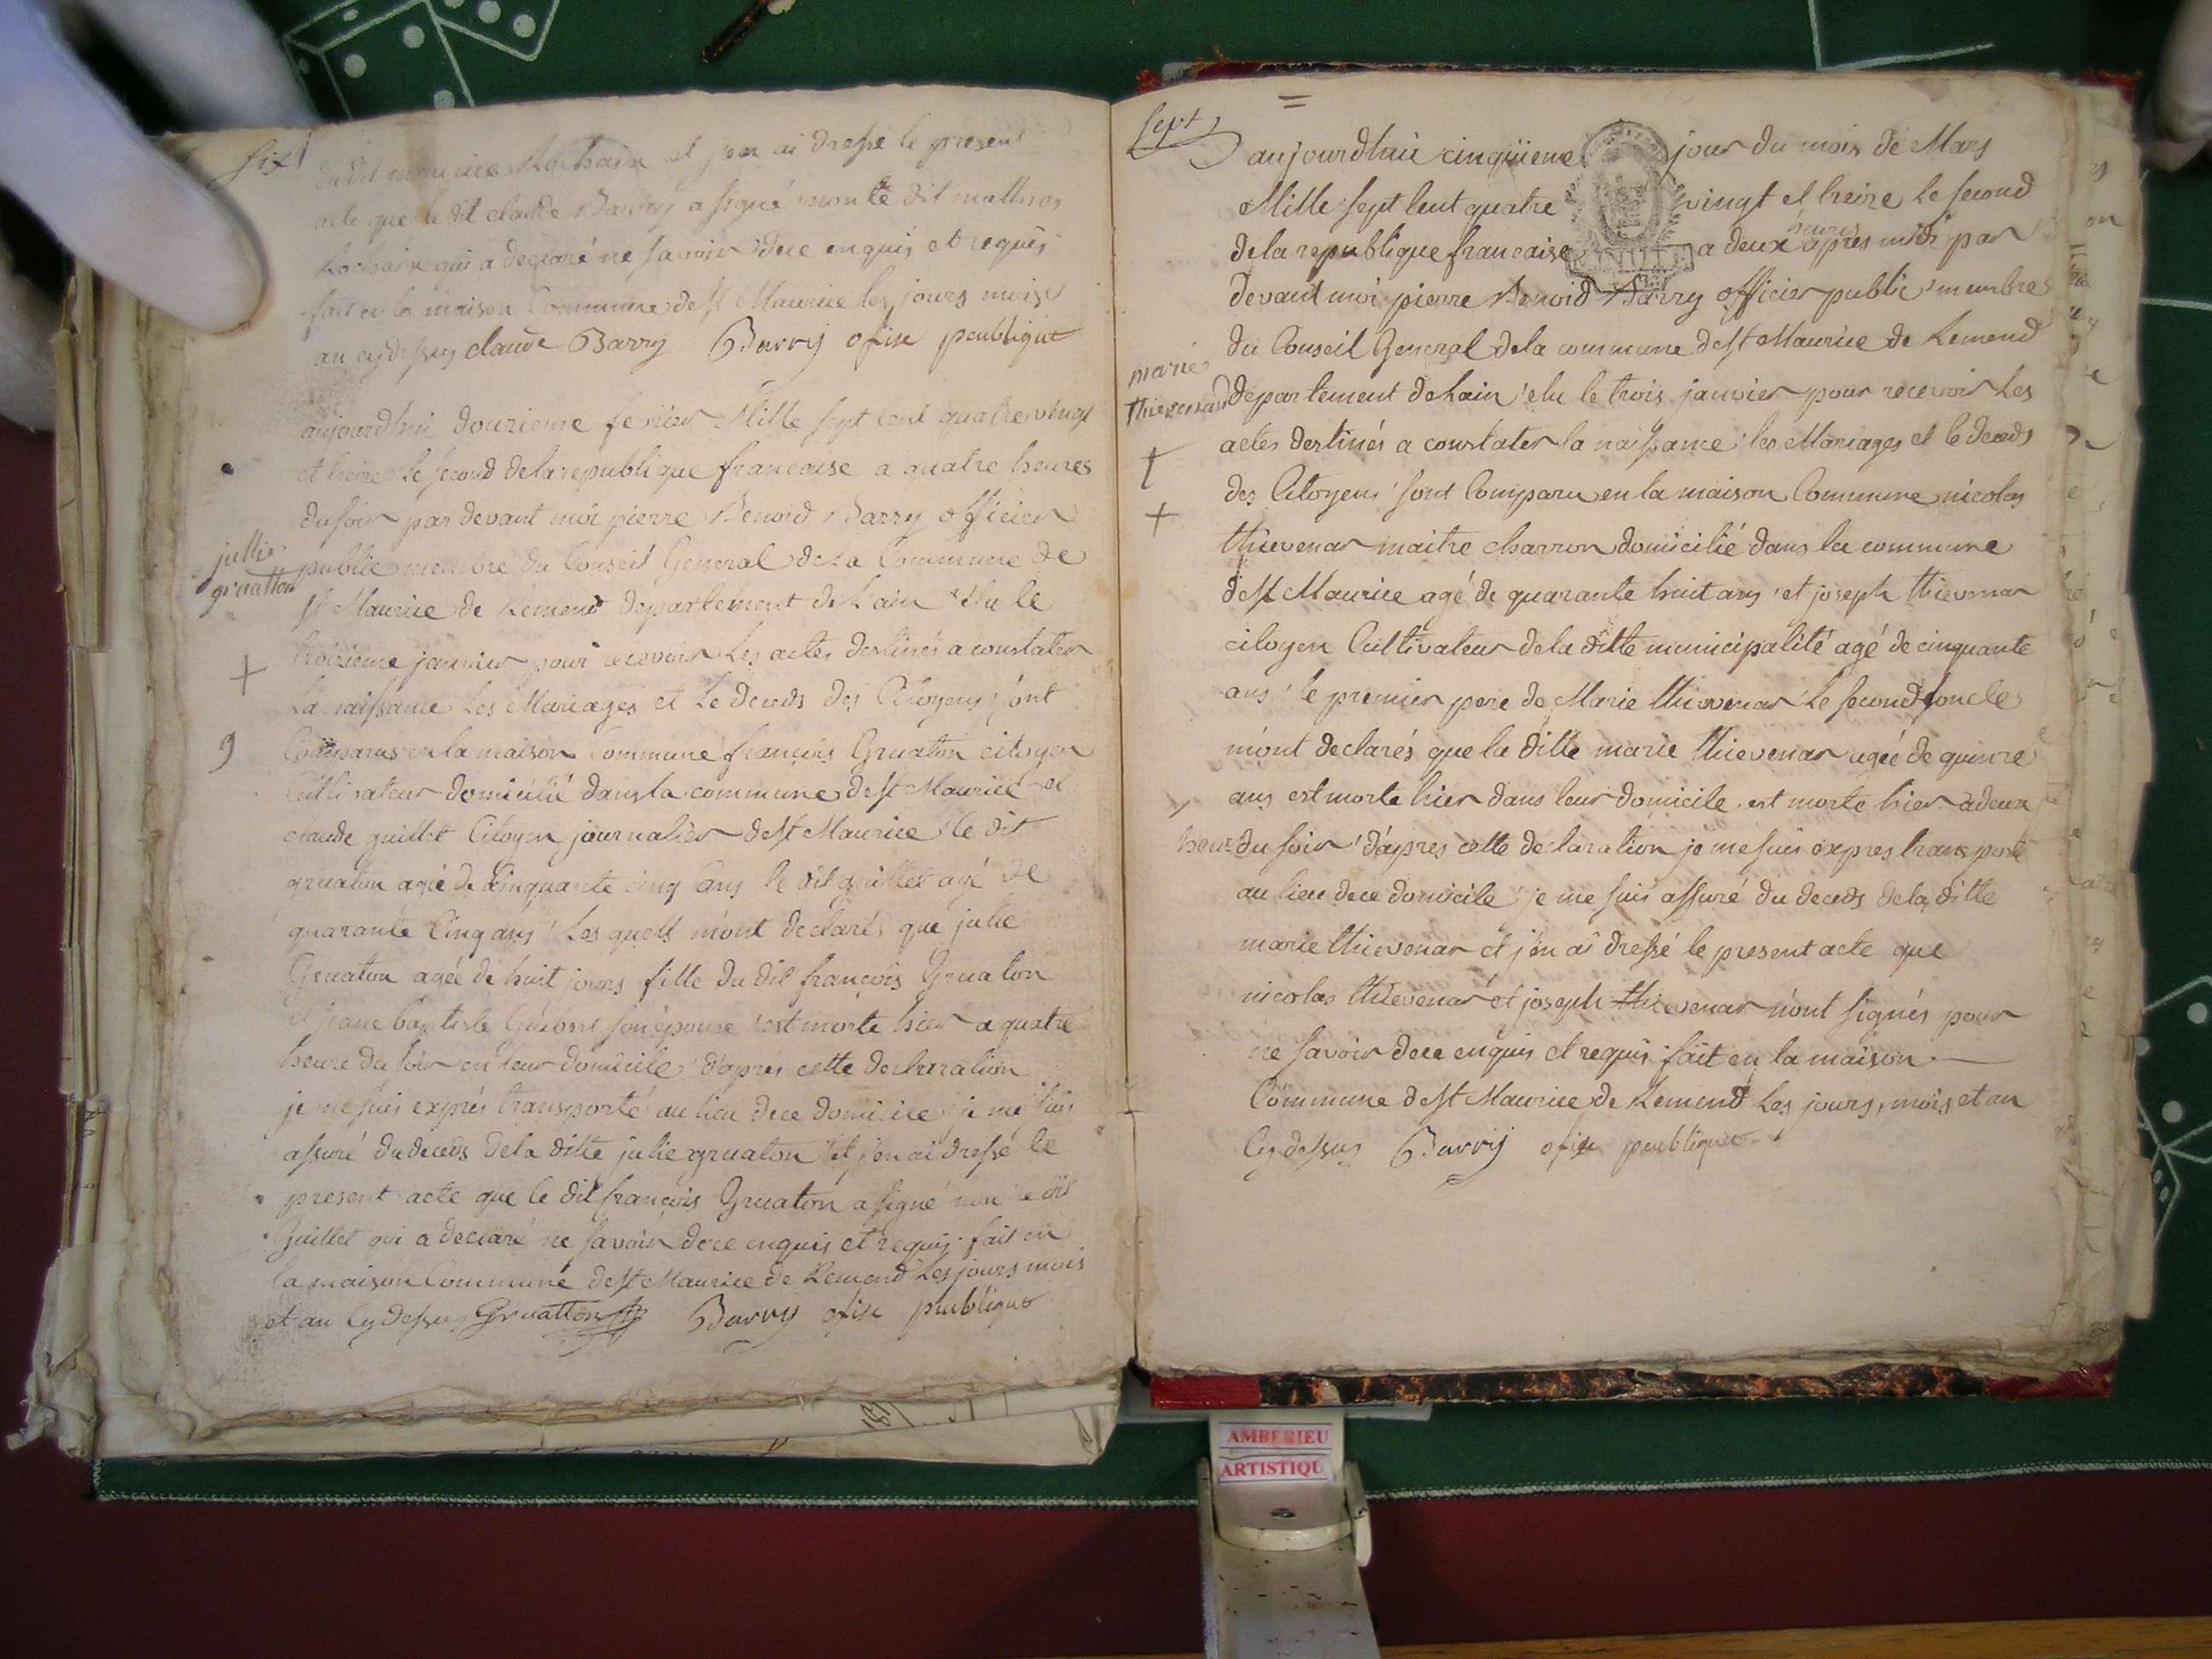 six
du dit maurice Rochaix et j'en ai dressé le present
acte que le dit claude Barry a signé non le dit
Rochaix qui a declaré ne savoir dece enquis et requis
fait en la maison Commune de st Maurice les jours mois
an cy dessus claude Barry Barry ofise peublique
aujourdhui douzieme fevrier Mille sept cent quatre vingt
et treize le second dela republique francaise a quatre heures
du soir par devant moi pierre Benoid Barry officier
jullie
gruatton
public membre du Conseil General dela Commune de
st Maurice de Remend departement de Lain elu le
troizieme janvier pour recevoir Les actes destinés a constater
La naissance Les Mariages et Le deceds des Citoyens sont
9
Comparus en la maison Commune francois Gruaton citoyen
Cultivateur domicilié dans la commune de st Maurice et
claude guillet Citoyen journalier de st Maurice le dit
gruaton agée de cinquante cinq ans le dit guillet agé de
quarante Cinq ans Les quels m'ont declarés que julie
Gruaton agée de huit jours fille du dit francois Gruaton
et jeane baptiste son épouse est morte hier a quatre
heure du soir en leur domicile d'apres cette declaration
je me suis exprés transporté au lieu dece domicile je me suis
assuré du deceds dela ditte julie gruaton et j'en ai dressé le
present acte que le dit francois Gruaton a signé non le dit
Guillet qui a declaré ne savoir dece enquis et requis fait en
la maison Commune de st Maurice de Remend Les jours mois
et an Cy dessus Gruatton Barry ofise peublique
sept
aujourdhui cinquieme jour du mois de Mars
Mille sept Cent quatre vingt et treize Le second
dela republique francaise a deux heures apres midi par
devant moi pierre Benoid Barry officier public membre
du Conseil General dela commune de st Maurice de Remend
marie
thievenard
departement de Lain elu le trois janvier pour recevoir Les
actes destinés a constater la naissance les Mariages et le deceds
des Citoyens sont Comparu en la maison Commune nicolas
thievenar maitre charron domicilié dans la commune
de st Maurice agé de quarante huit ans et joseph thievenar
citoyen Cultivateur dela ditte municipalité agé de cinquante
ans le premier pere de Marie thievenar Le second loncle
m'ont declarés que la ditte marie thievenar agée de quinze
ans est morte hier dans leur domicile est morte hier a deux
heure du soir d'apres cette declaration je me suis éxpres transporté
au lieu dece domicile je me suis assuré du deceds dela ditte
marie thievenar et j'en ai dressé le present acte que
nicolas thievenar et joseph thievenar n'ont signés pour
ne savoir dece enquis et requis fait en la maison
Commune de st Maurice de Remend Les jours, mois et an
Cy dessus Barry ofise peublique
AMBERIEU
ARTISTIQU